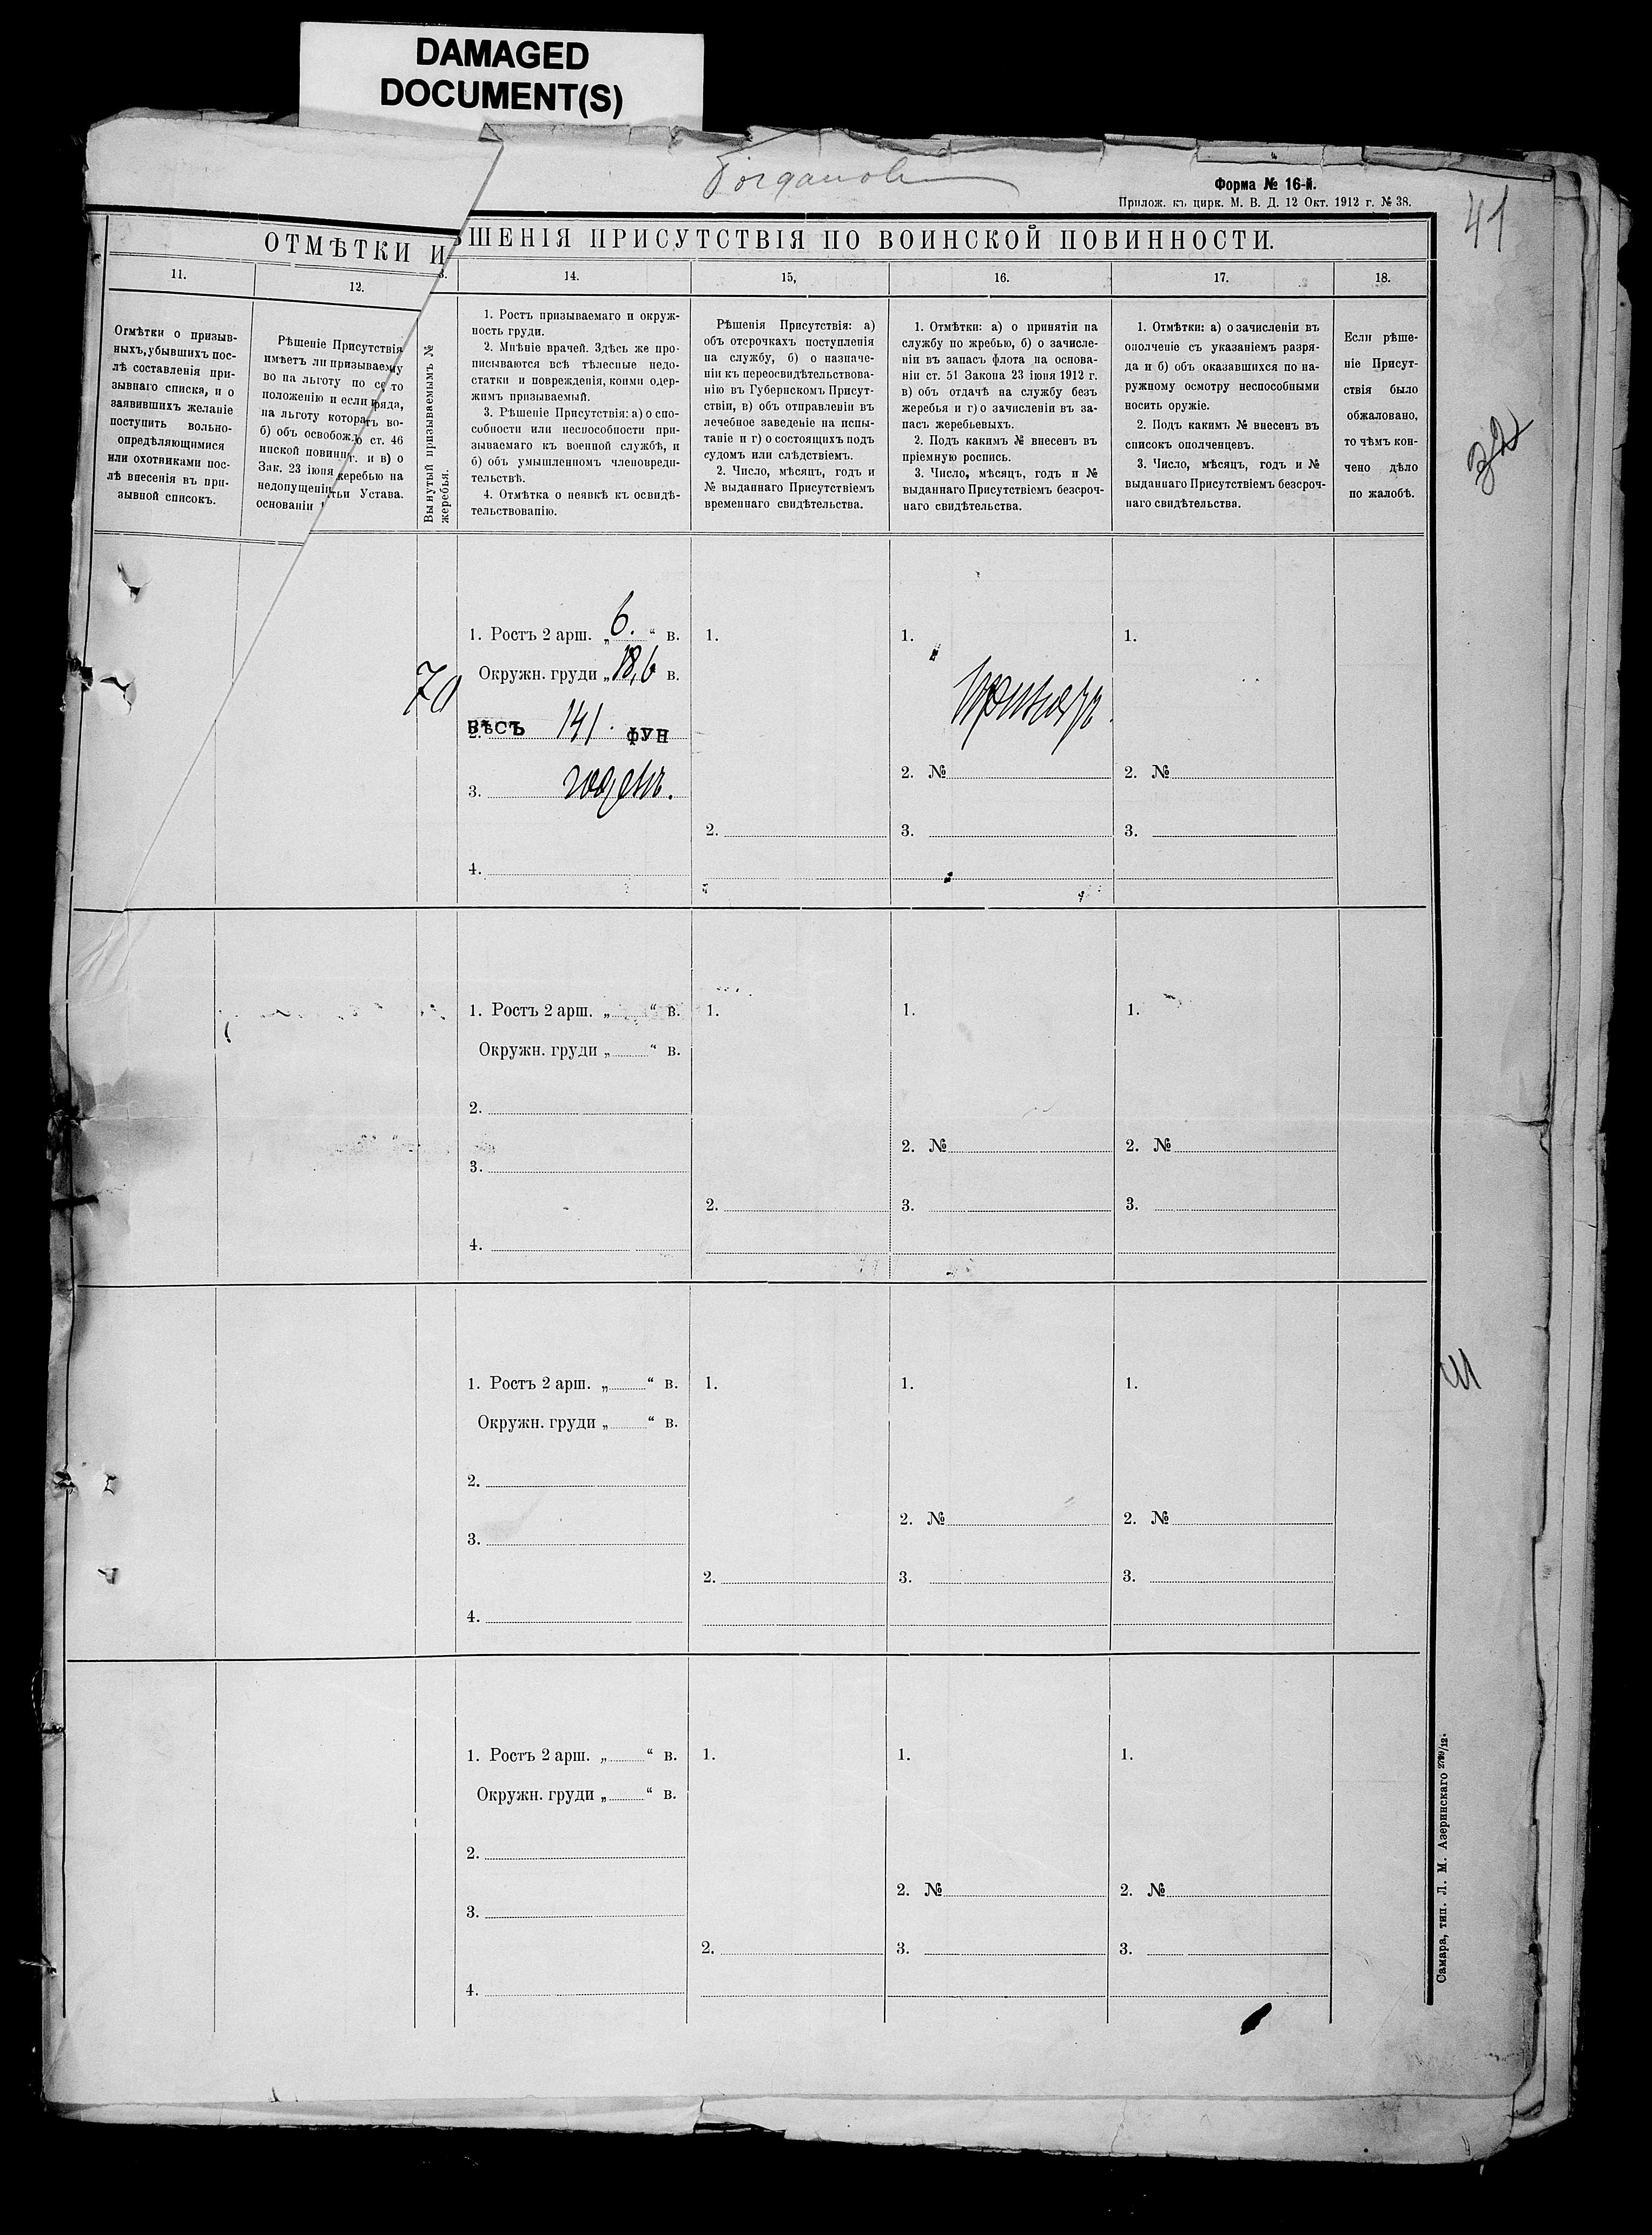 DAMAGED
DOCUMENT(S)
Форма № 16-й.
Прилож. къ цирк. М. В. Д. 12 Окт. 1912 г. № 38.
41
ОТМѢТКИ И ѢШЕНІЯ ПРИСУТСТВІЯ ПО ВОИНСКОЙ ПОВИННОСТИ.
11.
12.
3.
14.
15,
16.
17.
18.
Отмѣтки о призыв-
ныхъ, убывшихъ пос-
лѣ составленія при-
зывнаго списка, и о
заявившихъ желаніе
поступить вольно-
опредѣляющимися
или охотниками пос-
лѣ внесенія въ при-
зывной списокъ.
Рѣшеніе Присутствія
имѣетъ ли призываему
во на льготу по се то
положенію и если ряда,
на льготу которагъ во-
б) объ освобож о ст. 46
инской повинн г. и в) о
Зак. 23 іюня керебью на
недопущені тьи Устава.
основаніи
Вынутый призываемымъ №
жеребья.
1. Ростъ призываемаго и окруж-
ность груди.
2. Мнѣніе врачей. Здѣсь же про-
писываются всѣ тѣлесные недо-
статки и поврежденія, коими одер-
жимъ призываемый.
3. Рѣшеніе Присутствія: а) о спо-
собности или неспособности при-
зываемаго къ военной службѣ, и
б) объ умышленномъ членовреди-
тельствѣ.
4. Отмѣтка о неявкѣ къ освидѣ-
тельствованію.
Рѣшенія Присутствія: а)
объ отсрочкахъ поступленія
на службу, б) о назначе-
ніи къ переосвидѣтельствова-
нію въ Губернскомъ Присут-
ствіи, в) объ отправленіи въ
лечебное заведеніе на испы-
таніе и г) о состоящихъ подъ
судомъ или слѣдствіемъ.
2. Число, мѣсяцъ, годъ и
№ выданнаго Присутствіемъ
временнаго свидѣтельства.
1. Отмѣтки: а) о принятіи на
службу по жребью, б) о зачисле-
ніи въ запасъ флота на основа-
ніи ст. 51 Закона 23 іюня 1912 г.
в) объ отдачѣ на службу безъ
жеребья и г) о зачисленіи въ за-
пасъ жеребьевыхъ.
2. Подъ какимъ № внесенъ въ
пріемную роспись.
3. Число, мѣсяцъ, годъ и №
выданнаго Присутствіемъ безсроч-
наго свидѣтельства.
1. Отмѣтки: а) о зачисленіи въ
ополченіе съ указаніемъ разря-
да и б) объ оказавшихся по на-
ружному осмотру неспособными
носить оружіе.
2. Подъ какимъ № внесенъ въ
списокъ ополченцевъ.
3. Число, мѣсяцъ, годъ и №
выданнаго Присутствіемъ безсроч-
наго свидѣтельства.
Если рѣше-
ніе Присут-
ствія было
обжаловано,
то чѣмъ кон-
чено дѣло
по жалобѣ.
70
1. Ростъ 2 арш. „ 6. “ в.
Окружн. груди „ 18,6 в.
2. ВѢСЪ 141. ФУН
3. годенъ.
4.
1.
2.
1.
Принятъ.
2. №
3.
1.
2. №
3.
1. Ростъ 2 арш. „ “ в.
Окружн. груди „ “ в.
2.
3.
4.
1.
2.
1.
2. №
3.
1.
2. №
3.
1. Ростъ 2 арш. „ “ в.
Окружн. груди „ “ в.
2.
3.
4.
1.
2.
1.
2. №
3.
1.
2. №
3.
1. Ростъ 2 арш. „ “ в.
Окружн. груди „ “ в.
2.
3.
4.
1.
2.
1.
2. №
3.
1.
2. №
3.
Самара, тип. Л. М. Азеринскаго 2799/12.